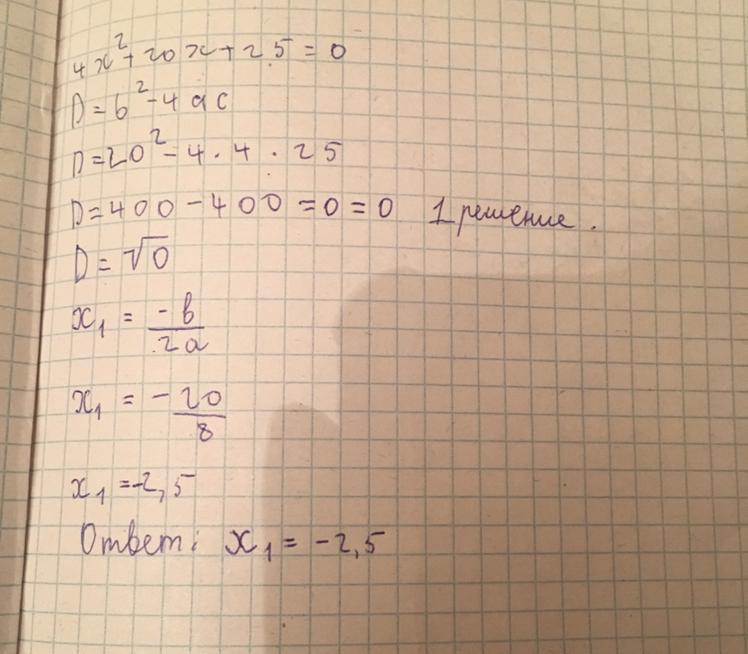 4x²+20x+25=0
D=b²-4ac
D=20²-4·4·25
D=400-400=0=0 1 решение.
D=√0
x₁=-b/2a
x₁=-20/8
x₁=-2,5
Ответ: x₁=-2,5